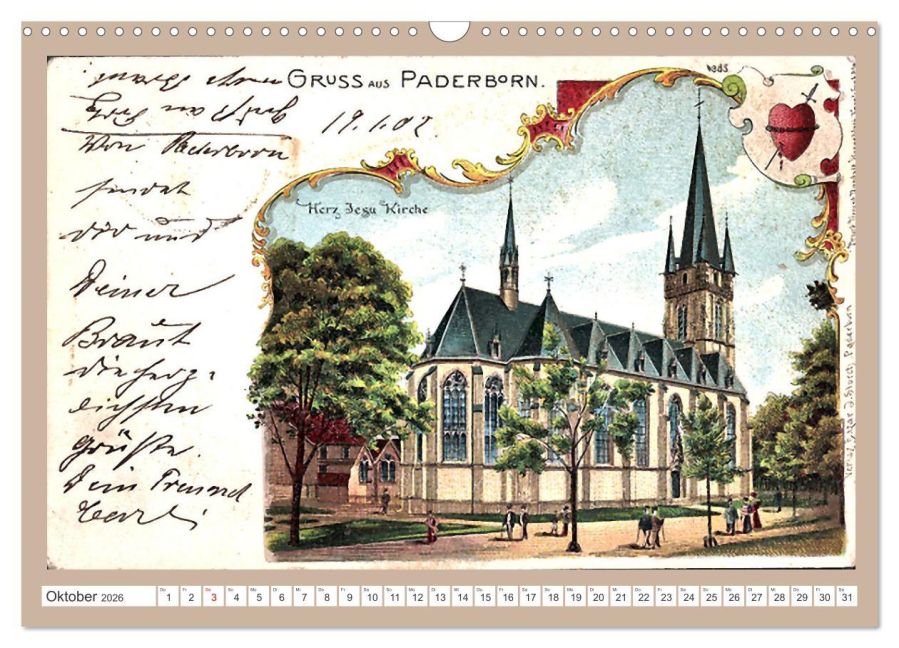 GRUSS AUS PADERBORN.
19.1.02.
Von Paderborn
sendet
dir und
Deiner
Braut
die herz-
lichsten
Grüße.
Dein Freund
Carl
Herz Jesu Kirche
Oktober 2026
Do Fr Sa So Mo Di Mi Do Fr Sa So Mo Di Mi Do Fr Sa So Mo Di Mi Do Fr Sa So Mo Di Mi Do Fr Sa
1 2 3 4 5 6 7 8 9 10 11 12 13 14 15 16 17 18 19 20 21 22 23 24 25 26 27 28 29 30 31